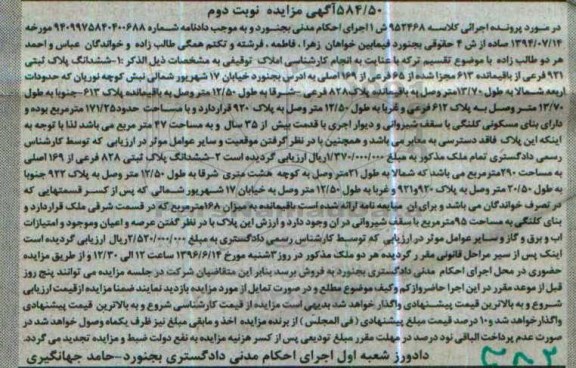 ۵۸۴/۵۰آگهی مزایده نوبت دوم
در مورد پرونده اجرائی کلاسه ۹۵۳۴۶۸ ش ۱ اجرای احکام مدنی بجنورد و به موجب دادنامه شماره ۹۴۰۹۹۷۵۸۴۰۴۰۰۶۸۸ مورخه
۱۳۹۴/۰۷/۱۴ صادره از ش ۴ حقوقی بجنورد فیمابین خواهان زهرا، فاطمه، فرشته و تکتم همگی طالب زاده و خواندگان عباس و احمد
هر دو طالب زاده با موضوع تقسیم ترکه با عنایت به انجام کارشناسی املاک توقیفی به مشخصات ذیل الذکر :۱-ششدانگ پلاک ثبتی
۹۲۱ فرعی از باقیمانده ۶۱۳ مجزا شده از ۶۵ فرعی از ۱۶۹ اصلی به آدرس بجنورد خیابان ۱۷ شهریور شمالی نبش کوچه نوریان که حدودات
اربعه شمالا به طول ۱۳/۷۰ متر وصل به باقیمانده پلاک ۸۲۸ فرعی -شرقا به طول ۱۲/۵۰ متر وصل به باقیمانده پلاک ۶۱۳-جنوبا به طول
۱۳/۷۰ متر وصل به پلاک ۶۱۲ فرعی و غربا به طول ۱۲/۵۰ متر وصل به پلاک ۹۲۰ قراردارد و با مساحت حدود ۱۷۱/۲۵ مترمربع بوده و
دارای بنای مسکونی کلنگی با سقف شیروانی و دیوار اجری با قدمت بیش از ۳۵ سال و به مساحت ۴۷ متر مربع می باشد لذا با توجه به
اینکه این پلاک فاقد دسترسی به معابر می باشد و همچنین با در نظر گرفتن موقعیت و سایر عوامل موثر در ارزیابی که توسط کارشناس
رسمی دادگستری تمام ملک مذکور به مبلغ ۱/۳۷۰/۰۰۰/۰۰۰ریال ارزیابی گردیده است ۲-ششدانگ پلاک ثبتی ۸۲۸ فرعی از ۱۶۹ اصلی
به مساحت ۲۹۰مترمربع می باشد که شمالا به طول ۲۱متر وصل به کوچه هشت متری شرقا به طول ۱۲/۵۰ متر وصل به پلاک ۹۲۲ جنوبا
به طول ۲۰/۵۰ متر وصل به پلاک ۹۲۰و۹۲۱ و غربا به طول ۱۲/۵۰ متر وصل به خیابان ۱۷ شهریور شمالی که پس از کسر قسمتهایی که
در تصرف خواندگان می باشد و برای ان مبایعه نامه ارائه شده است باقیمانده به میزان ۱۶۸مترمربع که در قسمت شرقی ملک قراردارد و
بنای کلنگی به مساحت ۹۵مترمربع با سقف شیروانی در ان وجود دارد و ارزش این پلاک با در نظر گفتن عرصه و اعیان وموجود و امتیازات
اب و برق و گاز و سایر عوامل موثر در ارزیابی که توسط کارشناس رسمی دادگستری به مبلغ ۲/۵۲۰/۰۰۰/۰۰۰ریال ارزیابی گردیده است
اینک پس از سیر مراحل قانونی مقرر گردیده هر دو ملک مذکور در روز ۳شنبه مورخ ۱۳۹۶/۶/۱۴ ساعت ۱۲ الی ۱۲/۳۰ و از طریق مزایده
حضوری در محل اجرای احکام مدنی دادگستری بجنورد به فروش برسد بنابر این متقاضیان شرکت در جلسه مزایده می توانند پنج روز
قبل از موعد مقرر در این اجرا حاضرو از کم و کیف موضوع مطلع و در صورت تمایل از مورد مزایده بازدید نمایند ضمنا مزایده از قیمت ارزیابی
شروع و به بالاترین قیمت پیشنهادی واگذار خواهد شد بدیهی است مزایده از قیمت کارشناسی شروع و به بالاترین قیمت پیشنهادی
واگذارخواهد شد و۱۰ درصد قیمت مبلغ پیشنهادی (فی المجلس) از برنده مزایده اخذ و مابقی مبلغ نیز ظرف یکماه وصول خواهد شد در
صورت عدم پرداخت الباقی نود درصد در مهلت مقرر مبلغ تودیعی پس از کسر هزینه مزایده به نفع دولت ضبط و مزایده تجدید می گردد.
دادورز شعبه اول اجرای احکام مدنی دادگستری بجنورد-حامد جهانگیری